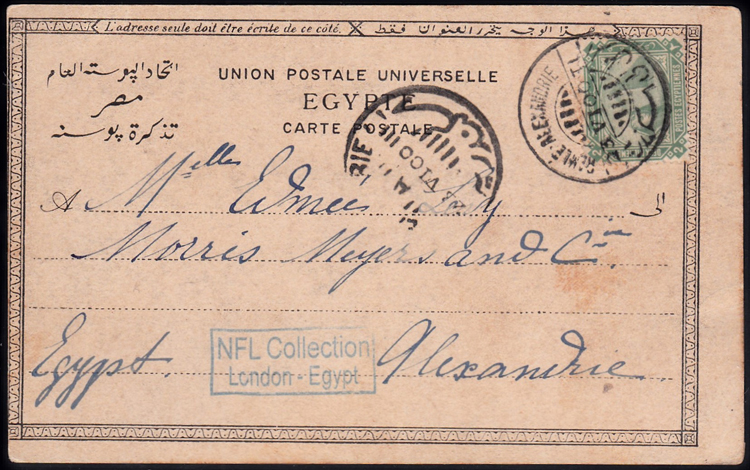 L'adresse seule doit être écrite de ce côté. هذا الوجه يحرر العنوان فقط
اتحاد البوسته العام
مصر
تذكرة بوسته
UNION POSTALE UNIVERSELLE
EGYPTE
CARTE POSTALE
RAMLE-ALEXANDRIE
A Melles Edmée الى
Morris Meyers and Cie
Egypt. Alexandrie
NFL Collection
London - Egypt